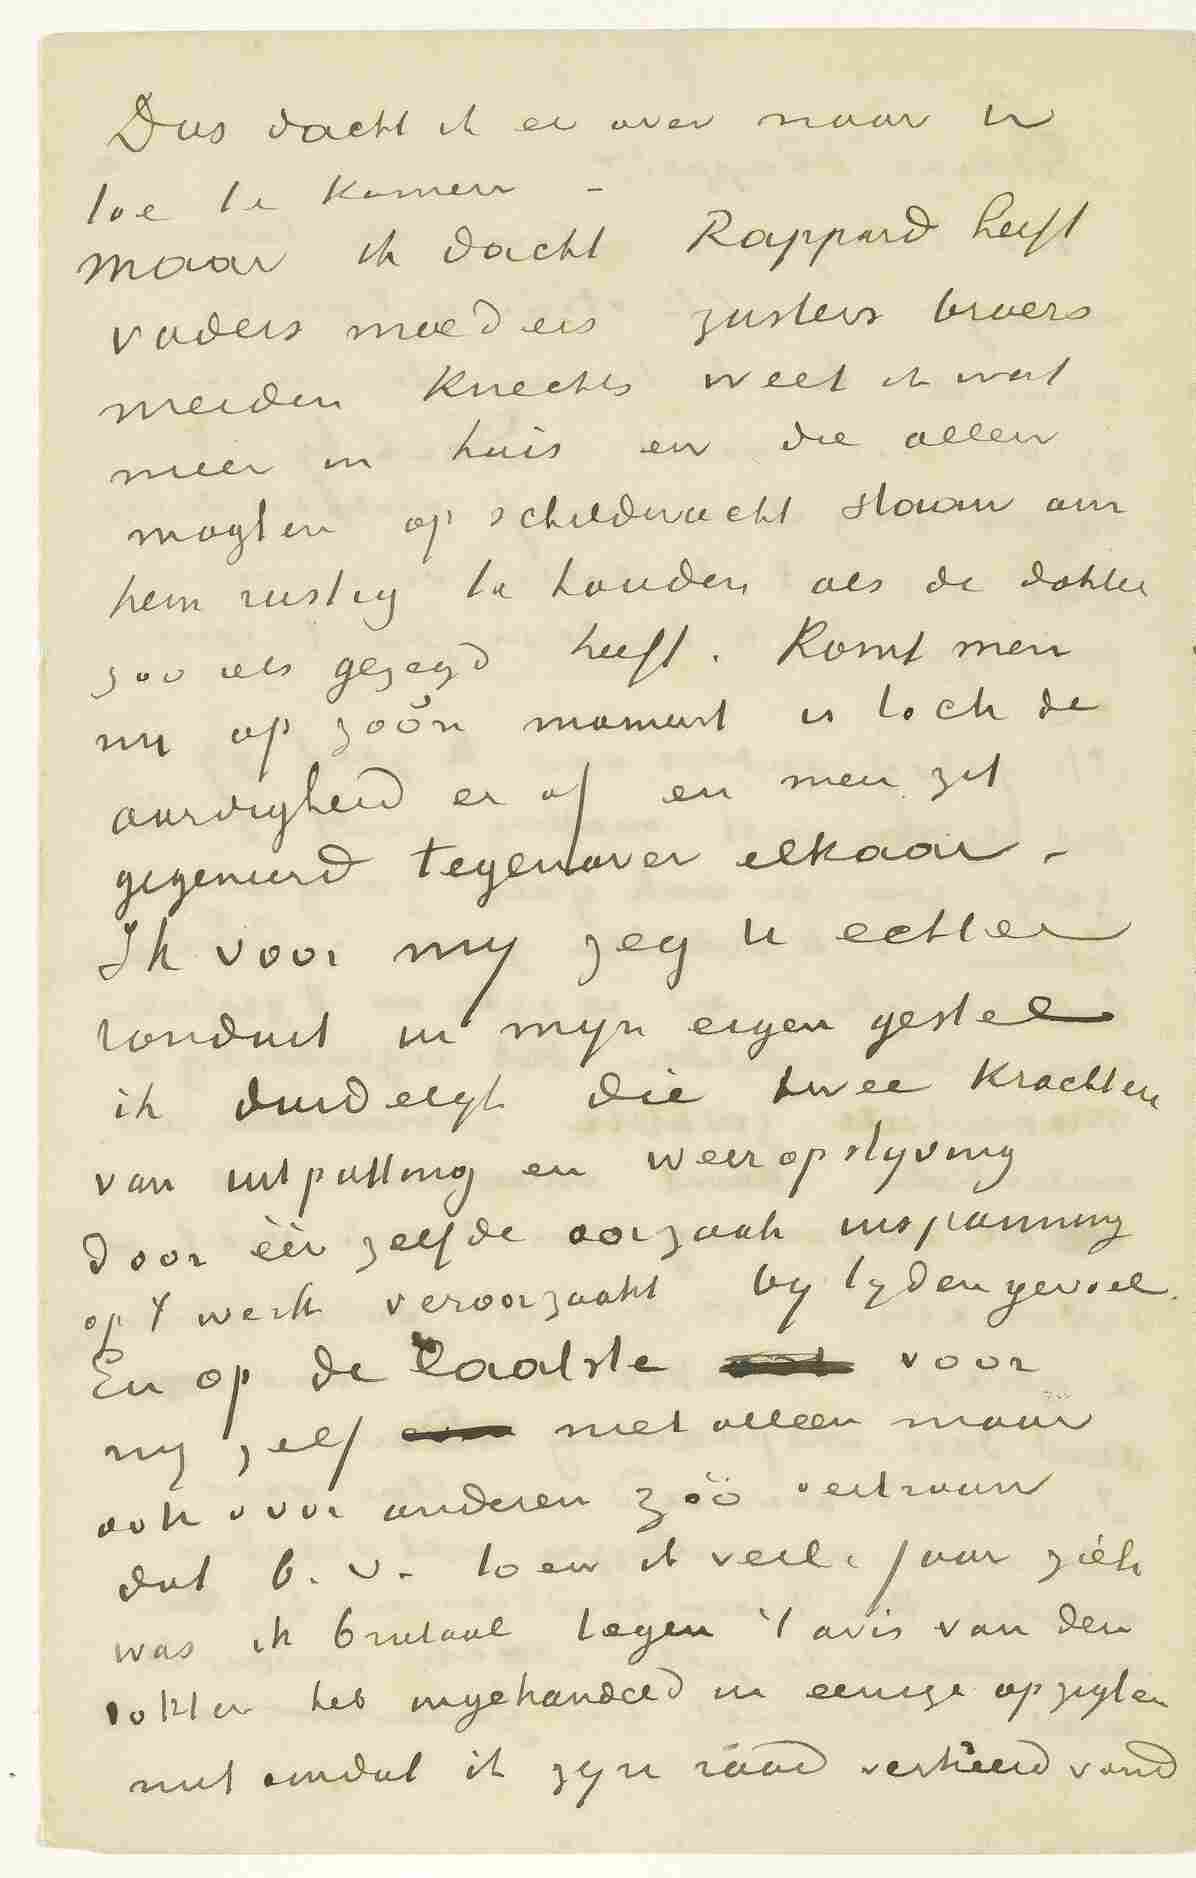 Dus dacht ik er over naar U
toe te komen –
maar ik dacht Rappard heeft
vaders moeders zusters broers
meiden knechts weet ik wat
meer in huis en die allen
mogten op schildwacht staan om
hem rustig te houden als de dokter
zoo iets gezegd heeft. Komt men
nu op zóó'n moment is toch de
aardigheid er af en men zit
gegeneerd tegenover elkaar. –
Ik voor my zeg U echter
ronduit in mijn eigen gestel
ik duidelyk die twee krachten
van uitputting en weeropstyving
door één zelfde oorzaak inspanning
op 't werk veroorzaakt by tyden gevoel.
En op de laatste voor
my zelf niet alleen maar
ook voor anderen zóó vertrouw
dat b.v. toen ik verl. jaar ziek
was ik brutaal tegen 't avis van den
dokter heb ingehandeld in eenige opzigten
niet omdat ik zyn raad verkeerd vond